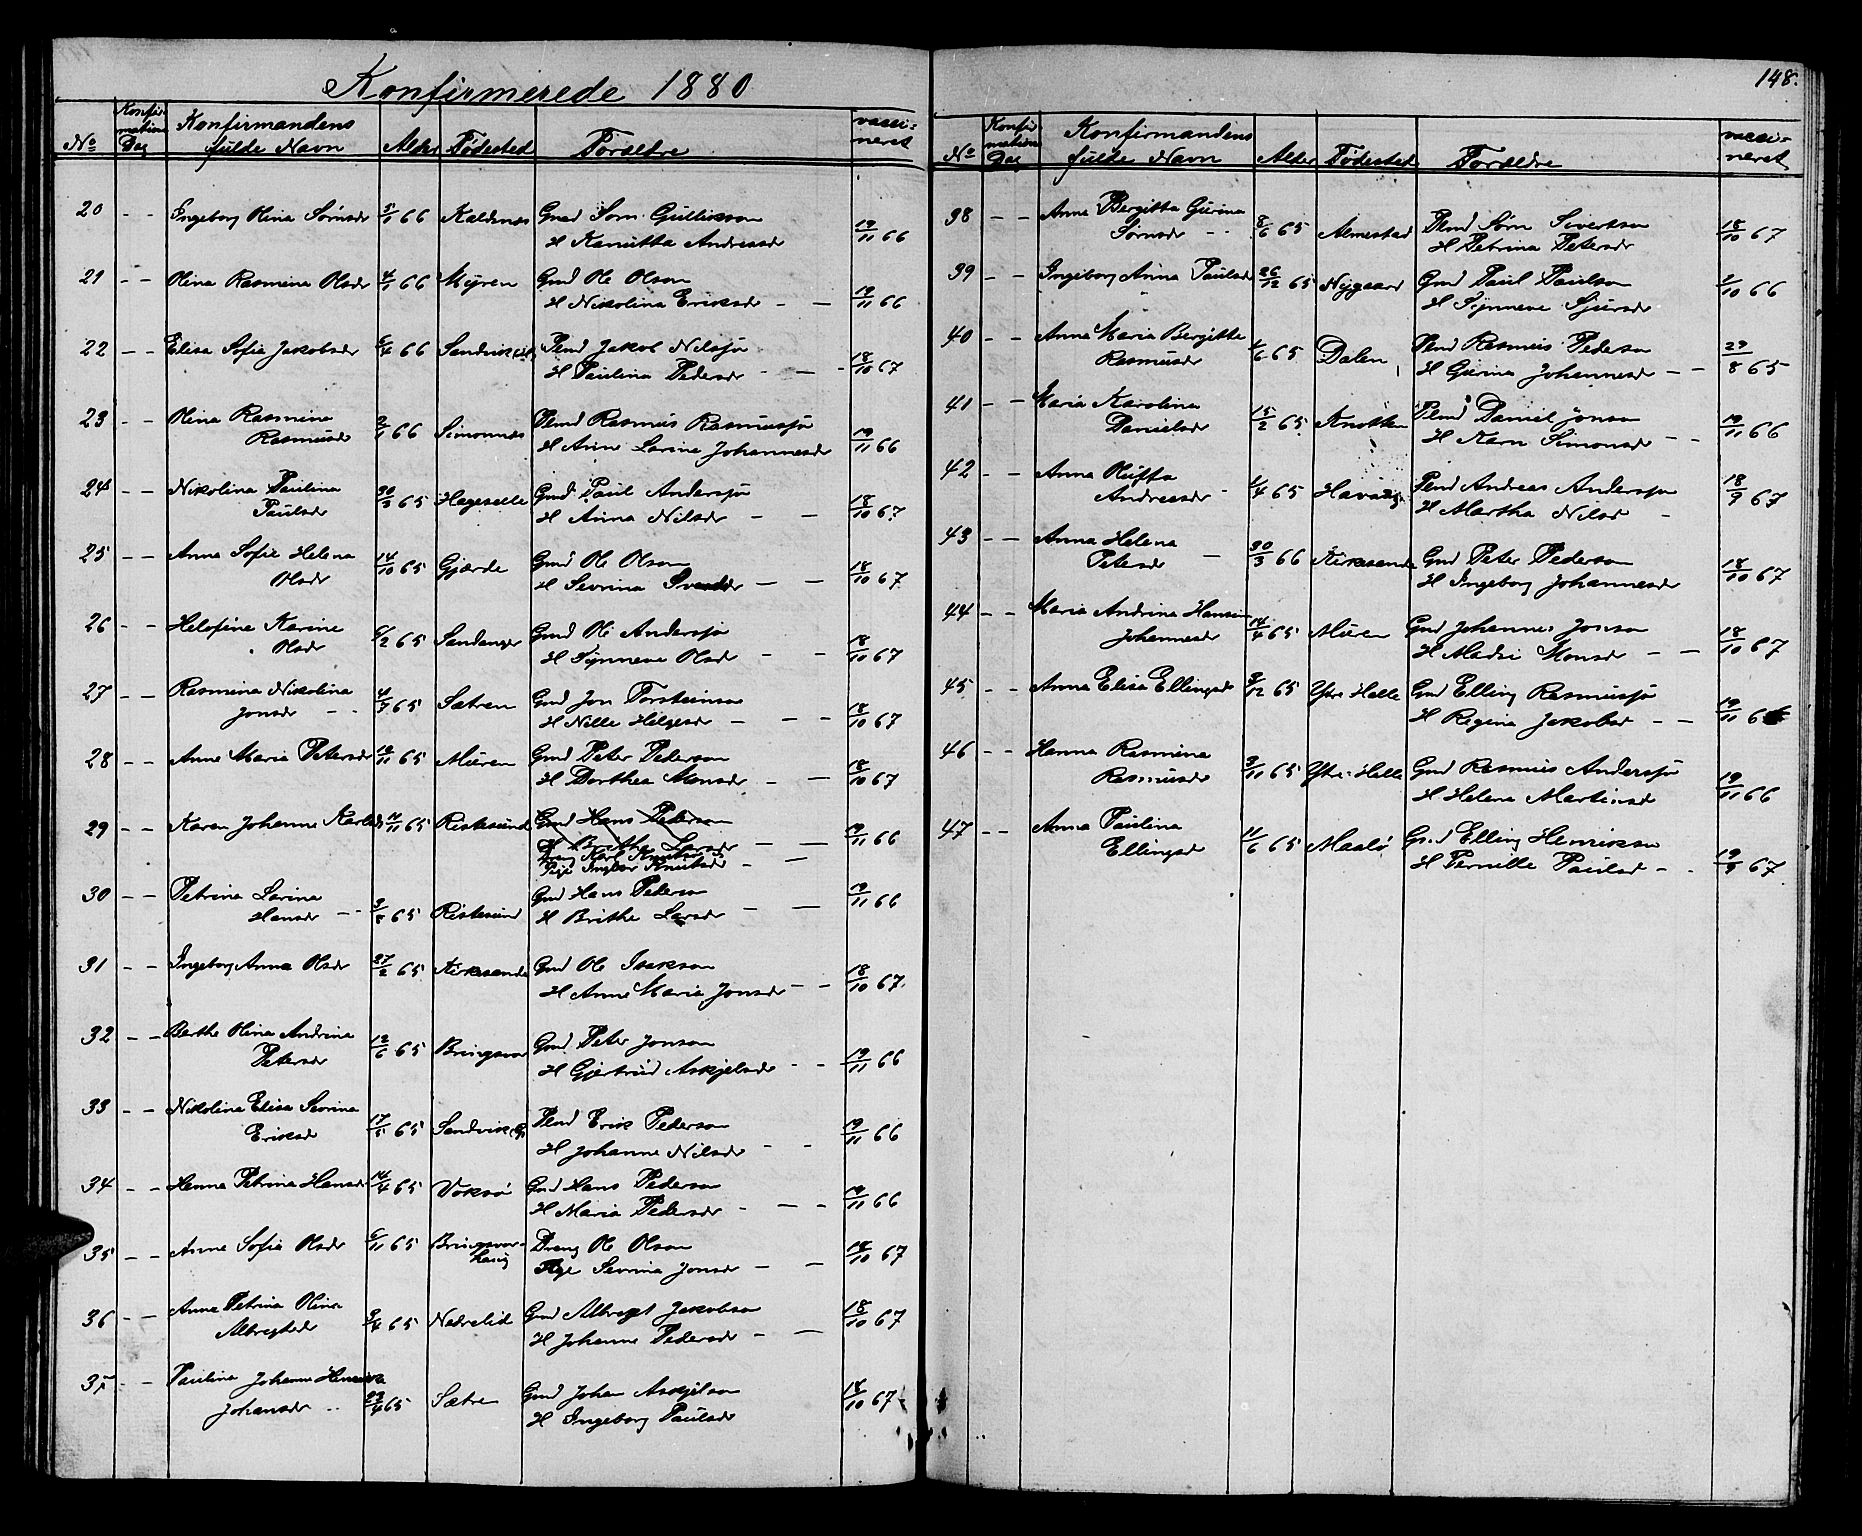 148.
Konfirmerede 1880
No Konfirmations Dag Konfirmandens fulde Navn Alder Fødested Forældre vaccineret
20 - - Ingeborg Olina Sørnsdr 3/1 66 Kaldenes Gmd Sørn Gulliksson
H Kanutta Andreasdr 19/11 66
21 - - Olina Rasmina Olsdr 4/1 66 Myren Gmd Ole Olson
H Nikolina Eriksdr - - 19/11 66
22 - - Elisa Sofie Jakobsdr 6/4 66 Sandvik Plmd Jakob Nilssø
H Paulina Pedersdr - - - 18/10 67
23 - - Olina Rasmina
Rasmusdr 2/1 66 Simonnes Plmd Rasmus Rasmussø
H Anne Larine Johannesdr 19/11 66
24 - - Nikolina Paulina
Paulsdr 30/3 65 Hageselle Gmd Paul Anderssø
H Anna Nilsdr - - 18/10 67.
25 - - Anna Sofie Helena
Olsdr 14/10 65 Gjærde Gmd Ole Olson
H Sevrina Svendsdr - - 18/10 67
26 - - Helofine Karine
Olsdr 6/2 65 Sandanger Gmd Ole Anderssø
H Synneve Olsdr - - 18/10 67
27 - - Rasmina Nikolina
Jonsdr - - 4/7 65 Sætren Gmd Jon Torsteinson
H Nille Helgesdr - - - 18/10 67
28 - - Anne Maria Petersdr 10/11 65 Muren Gmd Peter Pederson
H Dorthea Monsdr - - 18/10 67
29 - - Karen Johanne Karlsdr 11/11 65 Ristesund Gmd Hans Pederson
H Brithe Larsdr - -
Dreng Karl Knutson
Pige Ingebor Knutsdr - - 19/11 66
30 - - Petrina Larina
Hansdr - - 3/8 65 Ristesund Gmd Hans Pederson
H Brithe Larsdr - - 19/11 66
31 - - Ingeborg Anna Olsdr 27/2 65 Kirkesande Gmd Ole Isakson
H Anne Maria Jonsdr - - 18/10 67.
32 - - Berthe Olina Andrina
Petersdr 12/6 65 Bringsvor Gmd Peter Jonson
H Gjertrud Askjelsdr - - 19/11 66
33 - - Nikolina Elisa Sevrina
Eriksdr 17/5 65 Sandvik Plmd Erik Pederson
H Johanne Nilsdr - - 19/11 66
34 - - Hanna Petrina Hansdr 14/4 65 Voksø Gmd Hans Pederson
H Maria Pedersdr - - - 19/11 66
35 - - Anne Sofie Olsdr 6/11 65 Bringsvorhaug Dreng Ole Olson
Pige Sevrina Jonsdr - - 18/10 67
36 - - Anna Petrina Olina
Albregtsdr 9/4 65 Nedrelid Gmd Albregt Jakobson
H Johanne Pedersdr - - 18/10 67
37 - - Paulina Johanne
Johansdr - - 23/4 65 Sætre Gmd Johan Askjelson
H Ingeborg Paulsdr 18/10 67
No Konfirmations Dag Konfirmandens fulde Navn Alder Fødested Forældre vaccineret
38 - - Anna Bergitta Gurina
Sørnsdr - - 8/6 65 Almestad Plmd Sørn Sivertson
H Petrina Petersdr 18/10 67
39 - - Ingeborg Anna Paulsdr 26/12 65 Nygaard Gmd Paul Paulson
H Synneve Sjursdr 2/10 66
40 - - Anna Maria Bergitte
Rasmusdr 1/6 65 Dalen Plmd Rasmus Pederson
H Gurina Johannesdr - - 29/8 65
41 - - Maria Karolina
Danielsdr 15/2 65 Knotten Plmd Daniel Jonson
H Karn Simonsdr - - 19/11 66
42 - - Anna Oluffa
Andreasdr - 1/4 65 Plmd Andreas Anderssø
H Martha Nilsd - 18/9 67
43 - - Anna Helena
Petersdr - 30/3 66 Kirkesande Gmd Peter Pederson
H Ingeborg Johannesdr 18/10 67
44 - - Maria Andrina Hansine
Johannesdr 14/4 65 Muren Gmd Johannes Jonson
H Madsi Monsdr - - 18/10 67
45 - - Anna Elisa Ellingsdr 9/12 65 Ytre Helle Gmd Elling Rasmussø
H Regina Jakobsd - - 19/11 66
46 - - Hanna Rasmina
Rasmusdr 3/11 65 Ytre Helle Gmd Rasmus Anderssø
H Helena Martinsdr 19/11 66
47 - - Anna Paulina
Ellingsd 11/6 65 Maalø Gmd Elling Henrikson
H Pernille Paulsd - - 19/9 67